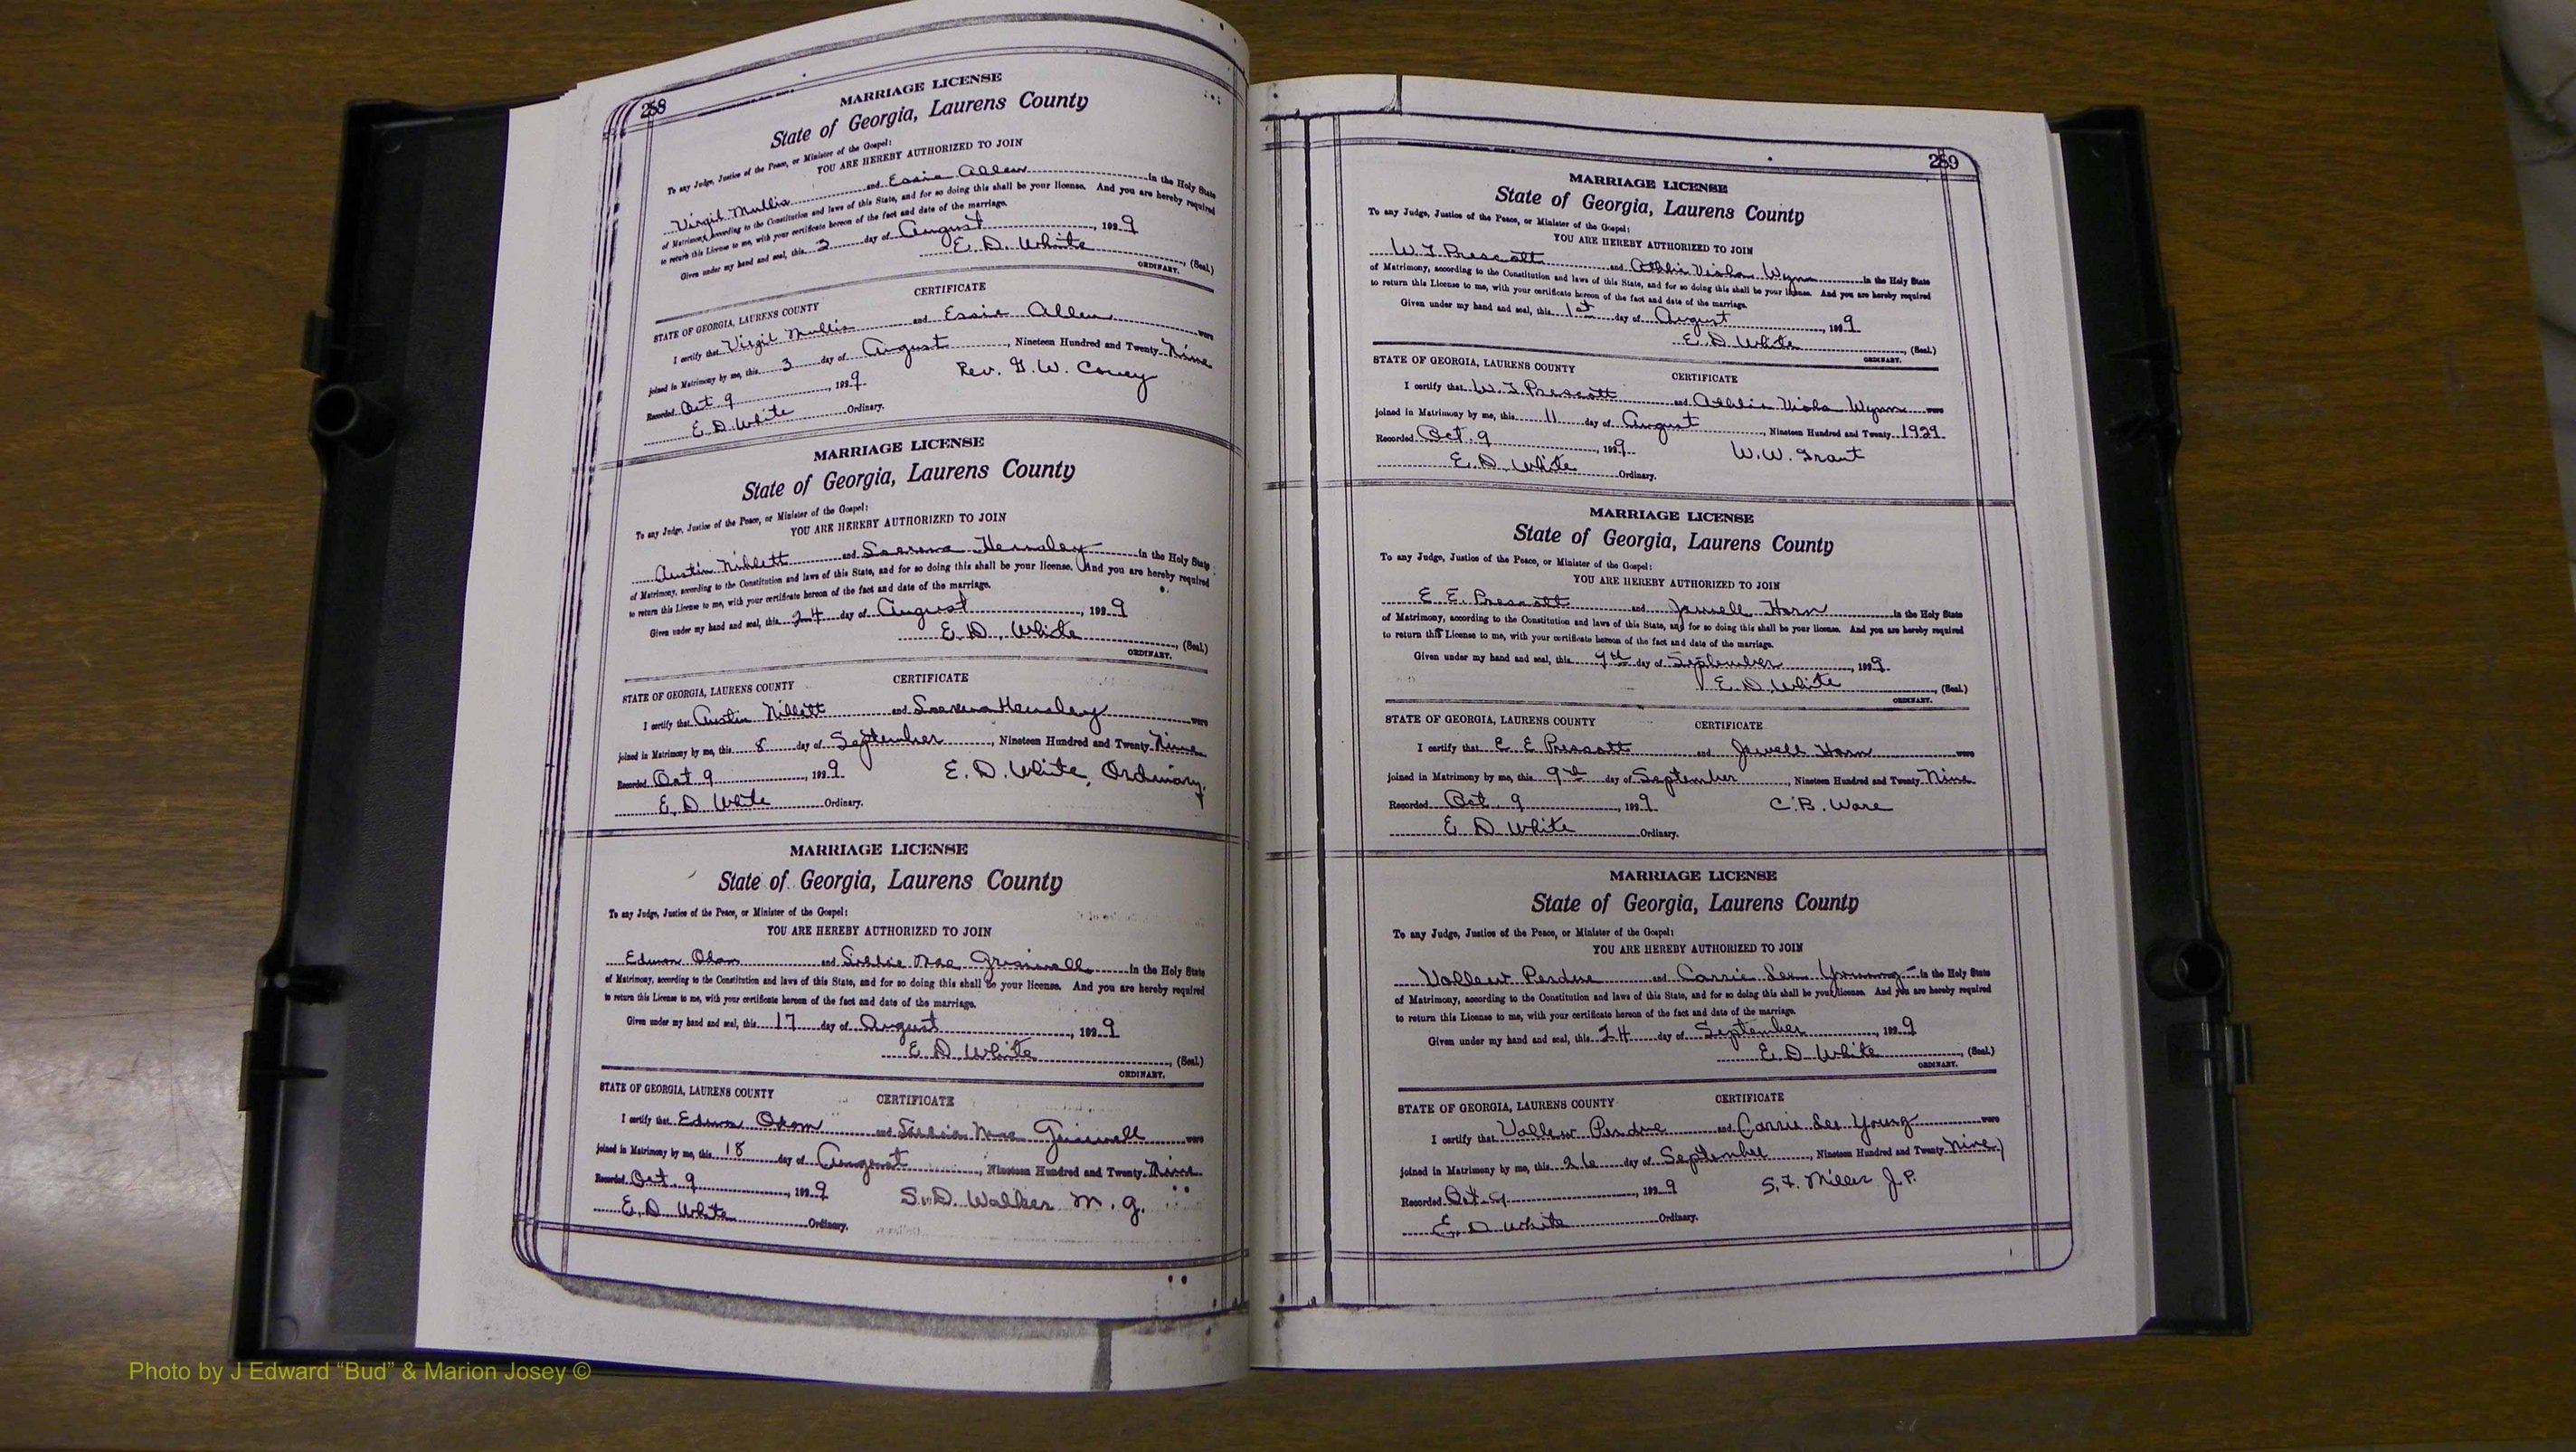 258
MARRIAGE LICENSE
State of Georgia, Laurens County
To any Judge, Justice of the Peace, or Minister of the Gospel:
YOU ARE HEREBY AUTHORIZED TO JOIN
Virgil Mullis and Essie Allen in the Holy State
of Matrimony, according to the Constitution and laws of this State, and for so doing this shall be your license. And you are hereby required
to return this License to me, with your certificate hereon of the fact and date of the marriage.
Given under my hand and seal, this 3 day of August, 1929
E. D. White (Seal.)
ORDINARY.
CERTIFICATE
STATE OF GEORGIA, LAURENS COUNTY
I certify that Virgil Mullis and Essie Allen were
joined in Matrimony by me, this 3 day of August, Nineteen Hundred and Twenty Nine
Recorded Oct 9, 1929. Rev. G. W. Coney
E. D. White Ordinary.
MARRIAGE LICENSE
State of Georgia, Laurens County
To any Judge, Justice of the Peace, or Minister of the Gospel:
YOU ARE HEREBY AUTHORIZED TO JOIN
Austin Niblett and Hensley in the Holy State
of Matrimony, according to the Constitution and laws of this State, and for so doing this shall be your license. And you are hereby required
to return this License to me, with your certificate hereon of the fact and date of the marriage.
Given under my hand and seal, this 24 day of August, 1929
E. D. White (Seal.)
ORDINARY.
CERTIFICATE
STATE OF GEORGIA, LAURENS COUNTY
I certify that Austin Niblett and Hensley were
joined in Matrimony by me, this 8 day of September, Nineteen Hundred and Twenty Nine
Recorded Oct 9, 1929. E. D. White, Ordinary.
E. D. White Ordinary.
MARRIAGE LICENSE
State of Georgia, Laurens County
To any Judge, Justice of the Peace, or Minister of the Gospel:
YOU ARE HEREBY AUTHORIZED TO JOIN
Odom and Mae Griswell in the Holy State
of Matrimony, according to the Constitution and laws of this State, and for so doing this shall be your license. And you are hereby required
to return this License to me, with your certificate hereon of the fact and date of the marriage.
Given under my hand and seal, this 17 day of August, 1929
E. D. White (Seal.)
ORDINARY.
STATE OF GEORGIA, LAURENS COUNTY CERTIFICATE
I certify that Odom and Mae Griswell were
joined in Matrimony by me, this 18 day of August, Nineteen Hundred and Twenty Nine
Recorded Oct. 9, 1929 S. D. Walker M. G.
E. D. White Ordinary.
259
MARRIAGE LICENSE
State of Georgia, Laurens County
To any Judge, Justice of the Peace, or Minister of the Gospel:
YOU ARE HEREBY AUTHORIZED TO JOIN
W. T. Prescott and Viola Wynn in the Holy State
of Matrimony, according to the Constitution and laws of this State, and for so doing this shall be your license. And you are hereby required
to return this License to me, with your certificate hereon of the fact and date of the marriage.
Given under my hand and seal, this 1st day of August, 1929
E. D. White (Seal.)
ORDINARY.
STATE OF GEORGIA, LAURENS COUNTY CERTIFICATE
I certify that W. T. Prescott and Viola Wynn were
joined in Matrimony by me, this 11 day of August, Nineteen Hundred and Twenty 1929
Recorded Oct. 9, 1929. W. W. Grant
E. D. White Ordinary.
MARRIAGE LICENSE
State of Georgia, Laurens County
To any Judge, Justice of the Peace, or Minister of the Gospel:
YOU ARE HEREBY AUTHORIZED TO JOIN
E. E. Prescott and Jewell Horn in the Holy State
of Matrimony, according to the Constitution and laws of this State, and for so doing this shall be your license. And you are hereby required
to return this License to me, with your certificate hereon of the fact and date of the marriage.
Given under my hand and seal, this 9th day of September, 1929
E. D. White (Seal.)
ORDINARY.
STATE OF GEORGIA, LAURENS COUNTY CERTIFICATE
I certify that E E Prescott and Jewell Horn were
joined in Matrimony by me, this 9th day of September, Nineteen Hundred and Twenty Nine
Recorded Oct. 9, 1929. C. B. Ware
E. D. White Ordinary.
MARRIAGE LICENSE
State of Georgia, Laurens County
To any Judge, Justice of the Peace, or Minister of the Gospel:
YOU ARE HEREBY AUTHORIZED TO JOIN
Perdue and Carrie Lee Young in the Holy State
of Matrimony, according to the Constitution and laws of this State, and for so doing this shall be your license. And you are hereby required
to return this License to me, with your certificate hereon of the fact and date of the marriage.
Given under my hand and seal, this 24 day of September, 1929
E. D. White (Seal.)
ORDINARY.
STATE OF GEORGIA, LAURENS COUNTY CERTIFICATE
I certify that Perdue and Carrie Lee Young were
joined in Matrimony by me, this 26 day of September, Nineteen Hundred and Twenty Nine
Recorded Oct. 9, 1929 S. F. Miller J. P.
E. D. White Ordinary.
Photo by J Edward “Bud” & Marion Josey ©